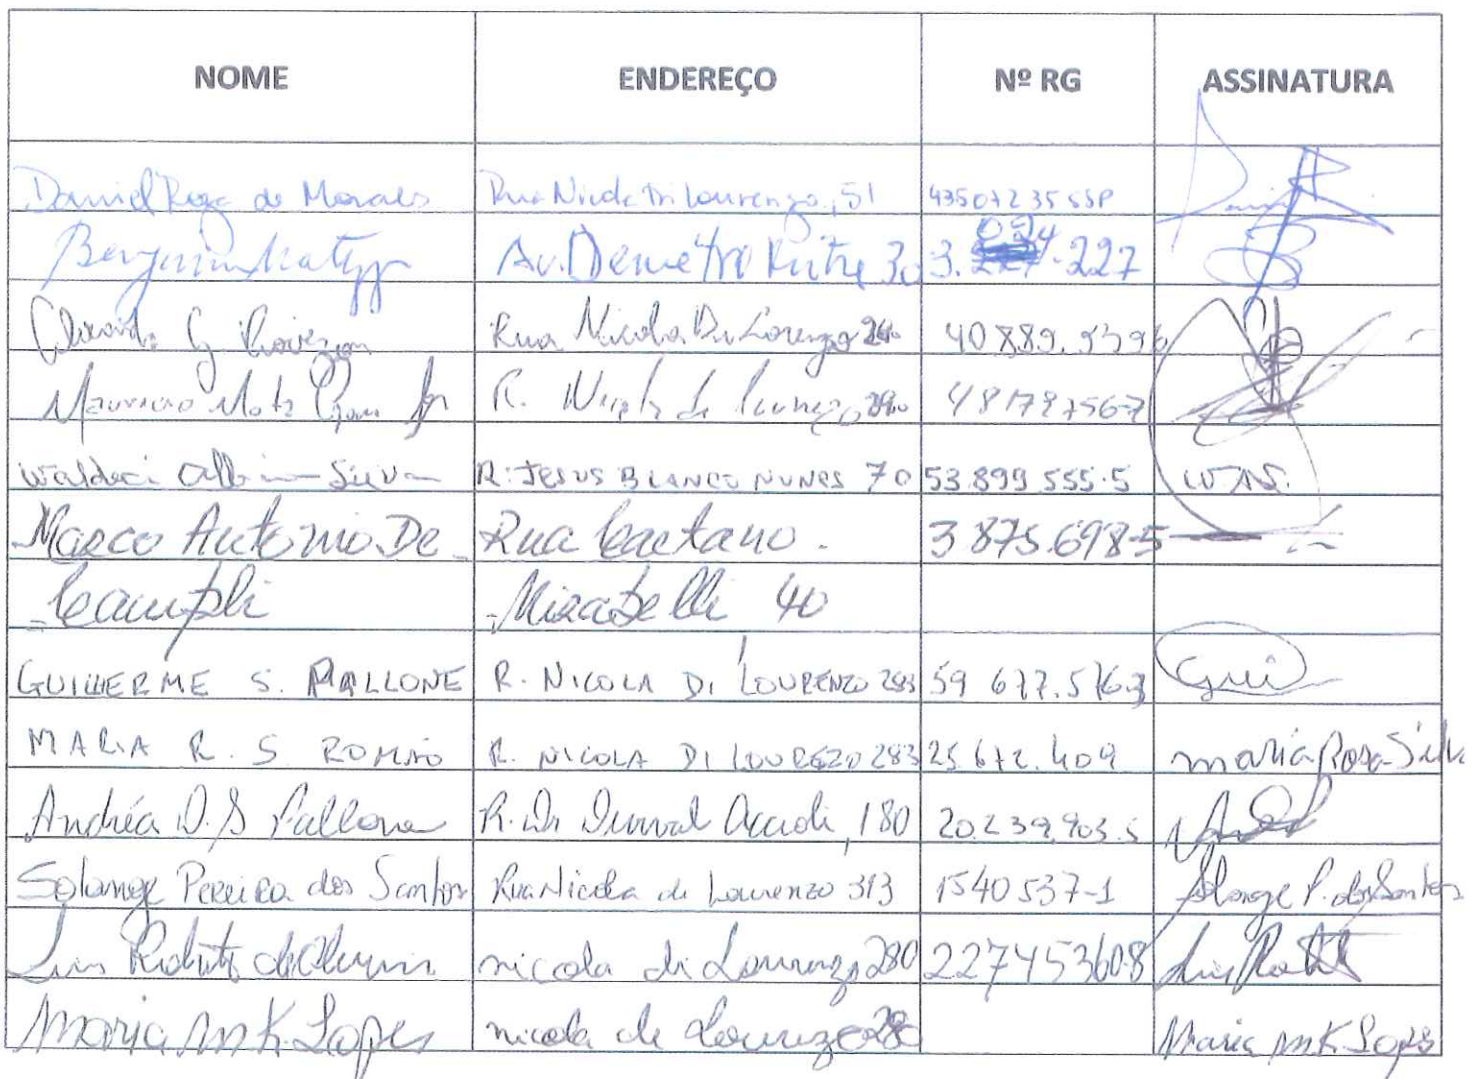 NOME ENDEREÇO Nº RG ASSINATURA
Daniel Roza de Moraes Rua Nicola Di Lourenzo, 51 43507235 SSP
Av. Demetrio 30 3.024.227
G. Rua Nicola Di Lorenzo 280 40.889.
Mauricio Mota Jr R. Nicola di 280 48179756-7
Waldeci Albino Silva R. JESUS BLANCO NUNES 70 53.899 555-5 W.A.S.
Marco Antonio De Rua Caetano. 3.875.698-5
Campli Mirabelli 40
GUILHERME S. PALLONE R. NICOLA DI LOURENZO 283 59 677.576.3 Gui
MARIA R. S. ROMÃO R. NICOLA DI LOUREZO 283 25.672.409 maria Rosa Silva
Andréa D. S Pallone R. Dr Durval Accioli, 180 20.239.903.5
Solange Pereira dos Santos Rua Nicola di Lourenzo 313 1540537-1 Solange P. dos Santos
Luis Roberto de nicola di Lourenzo 280 227453608 Luis
Maria M K. Lopes nicola de Lourenzo 280 Maria M K Lopes